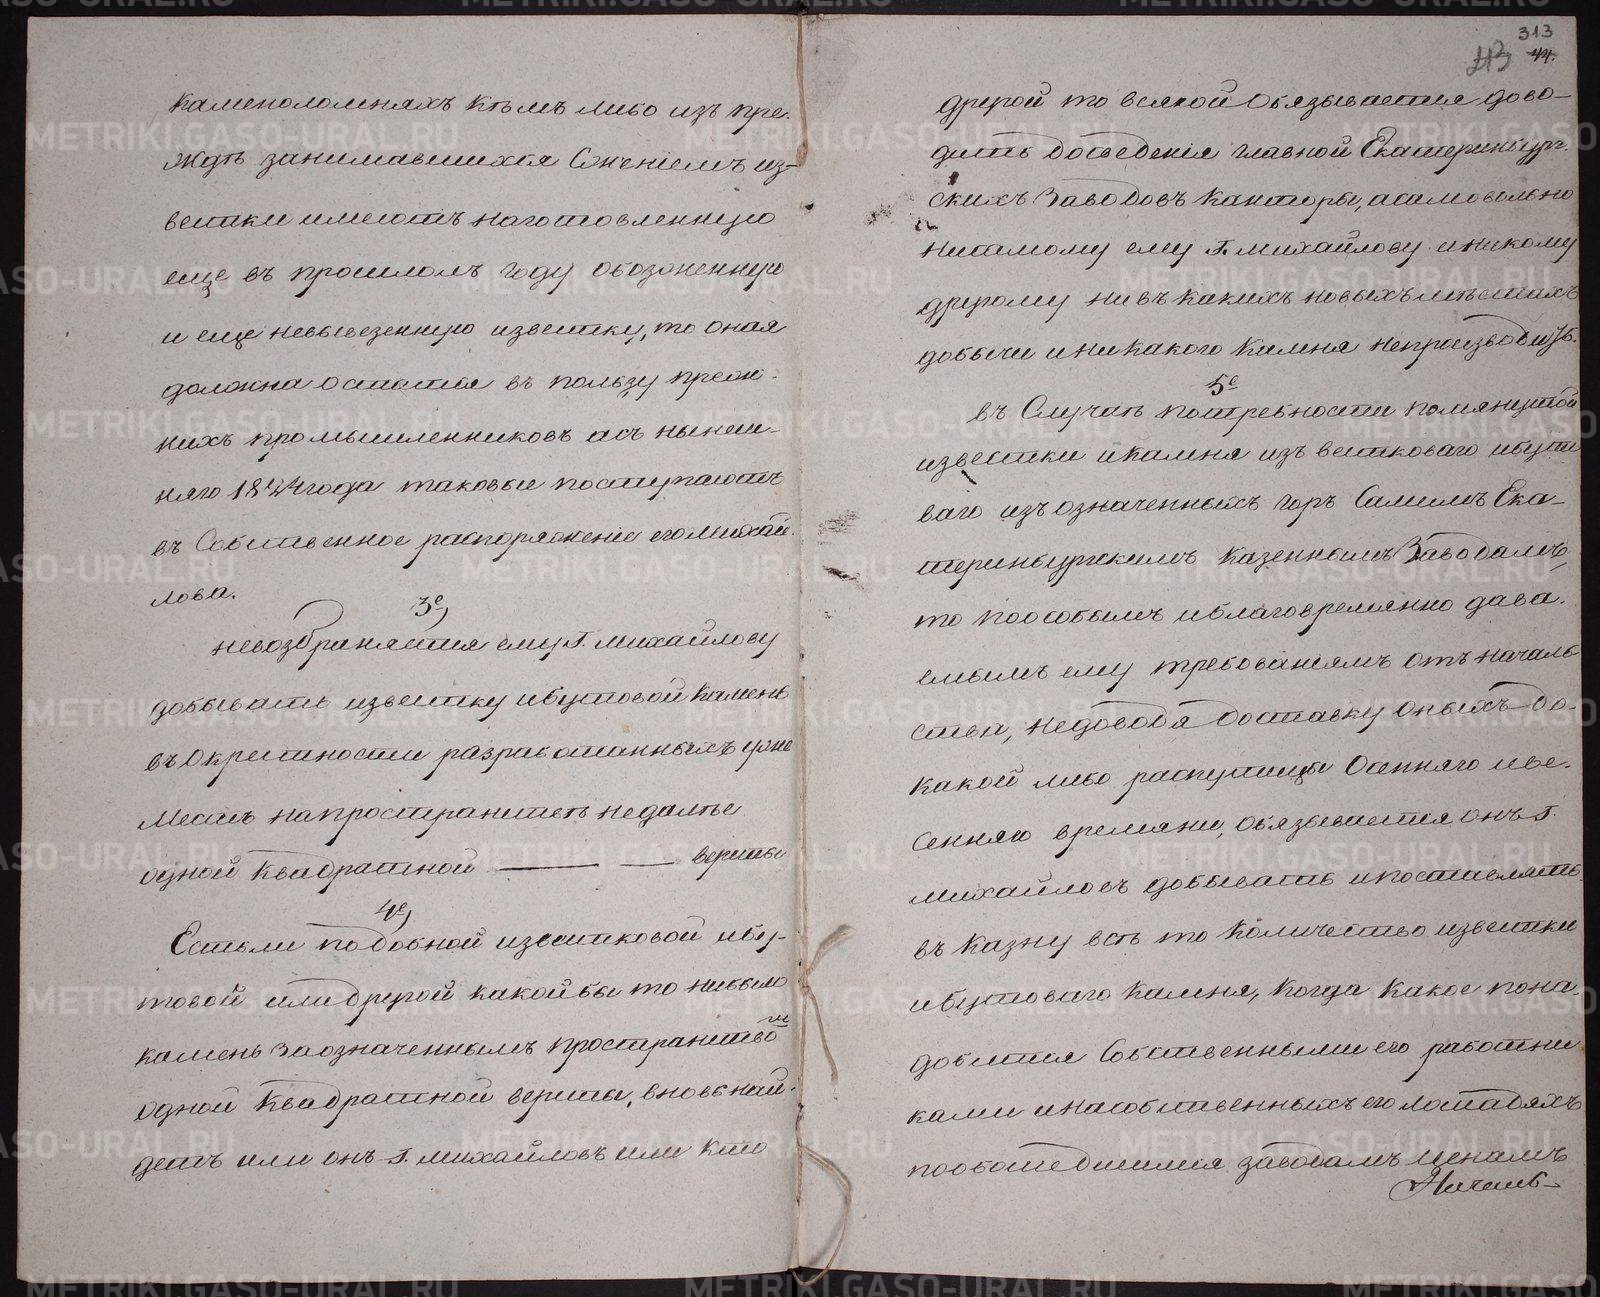 каменоломняхъ кѣмъ либо изъ пре-
ждѣ занимавшихся сженіемъ из-
вестки имеютъ наготовленную
еще въ прошломъ году обозженную
и еще невывезенную известку, то оная
должна остатся въ пользу преж-
нихъ промышленниковъ асъ нынеш-
няго 1844 года таковые поступаютъ
въ Собственное распоряженіе его Михай-
лова.
3е,
невозбраняется ему Г. Михайлову
добывать известку ибутовой камень
въ окрестности разработанныхъ уже
местъ напространстве недалѣе
одной квадратной версты
4е,
Естьли подобной известковой ибу-
товой илидругой какойбы то нибыло
камень заозначеннымъ пространство
мъ
одной квадратной версты, вновь най-
детъ или онъ Г. Михайловъ или кто
313
213 44.
другой то всякой обязывается дово-
дить досведенія главной Екатеринбург-
скихъ Заводовъ Канторы, асамовольно
нисамому ему Г. Михайлову иникому
другому нивъ какихъ новыхъ мѣстахъ
добычи иникакого камня непроизводить.
5е
въ Случаѣ потребности помянутой
известки икамня изъ вестковаго ибуто
ваго изъ означенныхъ горъ Самимъ Ека-
теринбургскимъ казеннымъ Заводамъ,
то поособымъ иблаговремянно дава-
емымъ ему требованіямъ отъ началь
ства, недоводя доставку оныхъ до-
какой либо распутицы Осенняго иве-
сенняго времяни, обязывается онъ Г.
Михайловъ добывать ипоставлять
въ казну всѣ то количество известки
ибутоваго камня, когда какое пона-
добится Собственными его работни
ками инасобственныхъ его лошадяхъ
пообошедшимся заводамъ ценамъ
Началь-